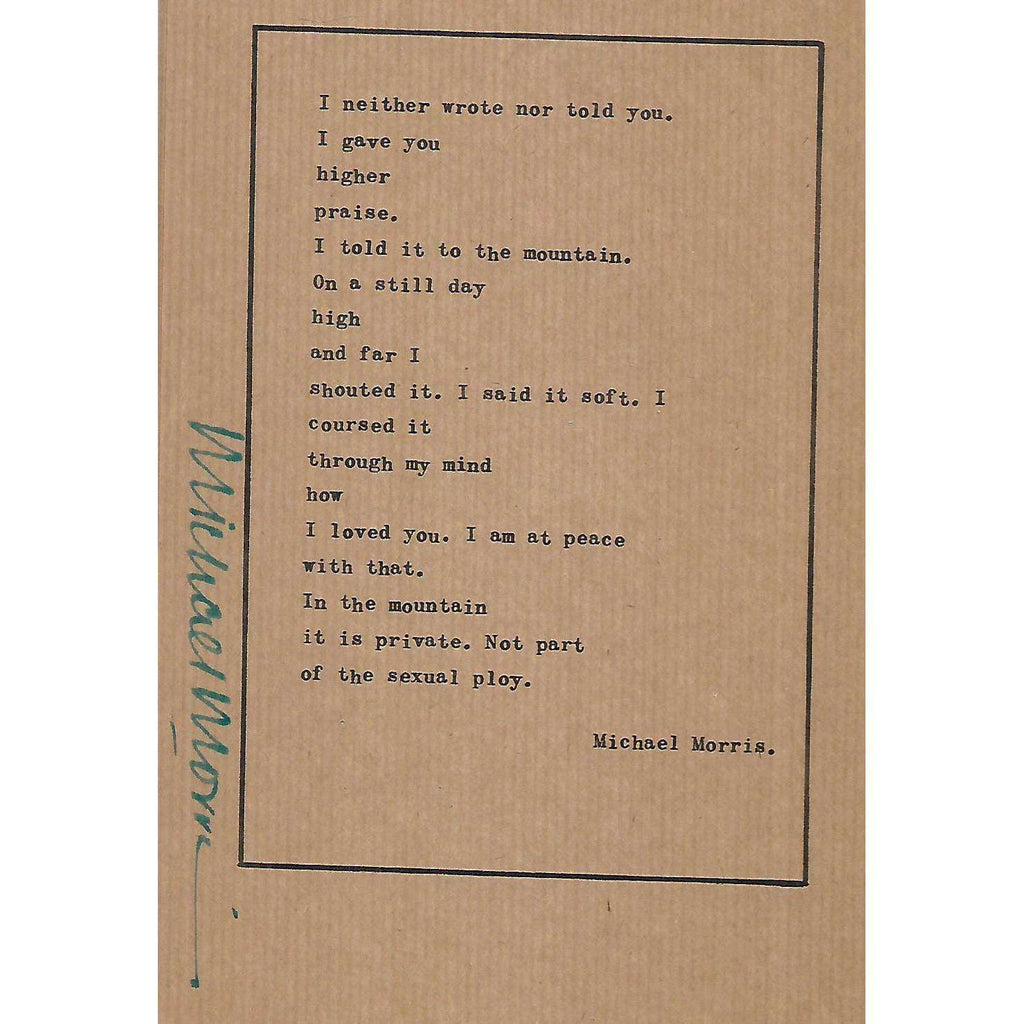 I neither wrote nor told you.
I gave you
higher
praise.
I told it to the mountain.
On a still day
high
and far I
shouted it. I said it soft. I
coursed it
through my mind
how
I loved you. I am at peace
with that.
In the mountain
it is private. Not part
of the sexual ploy.
Michael Morris.
Michael Morris